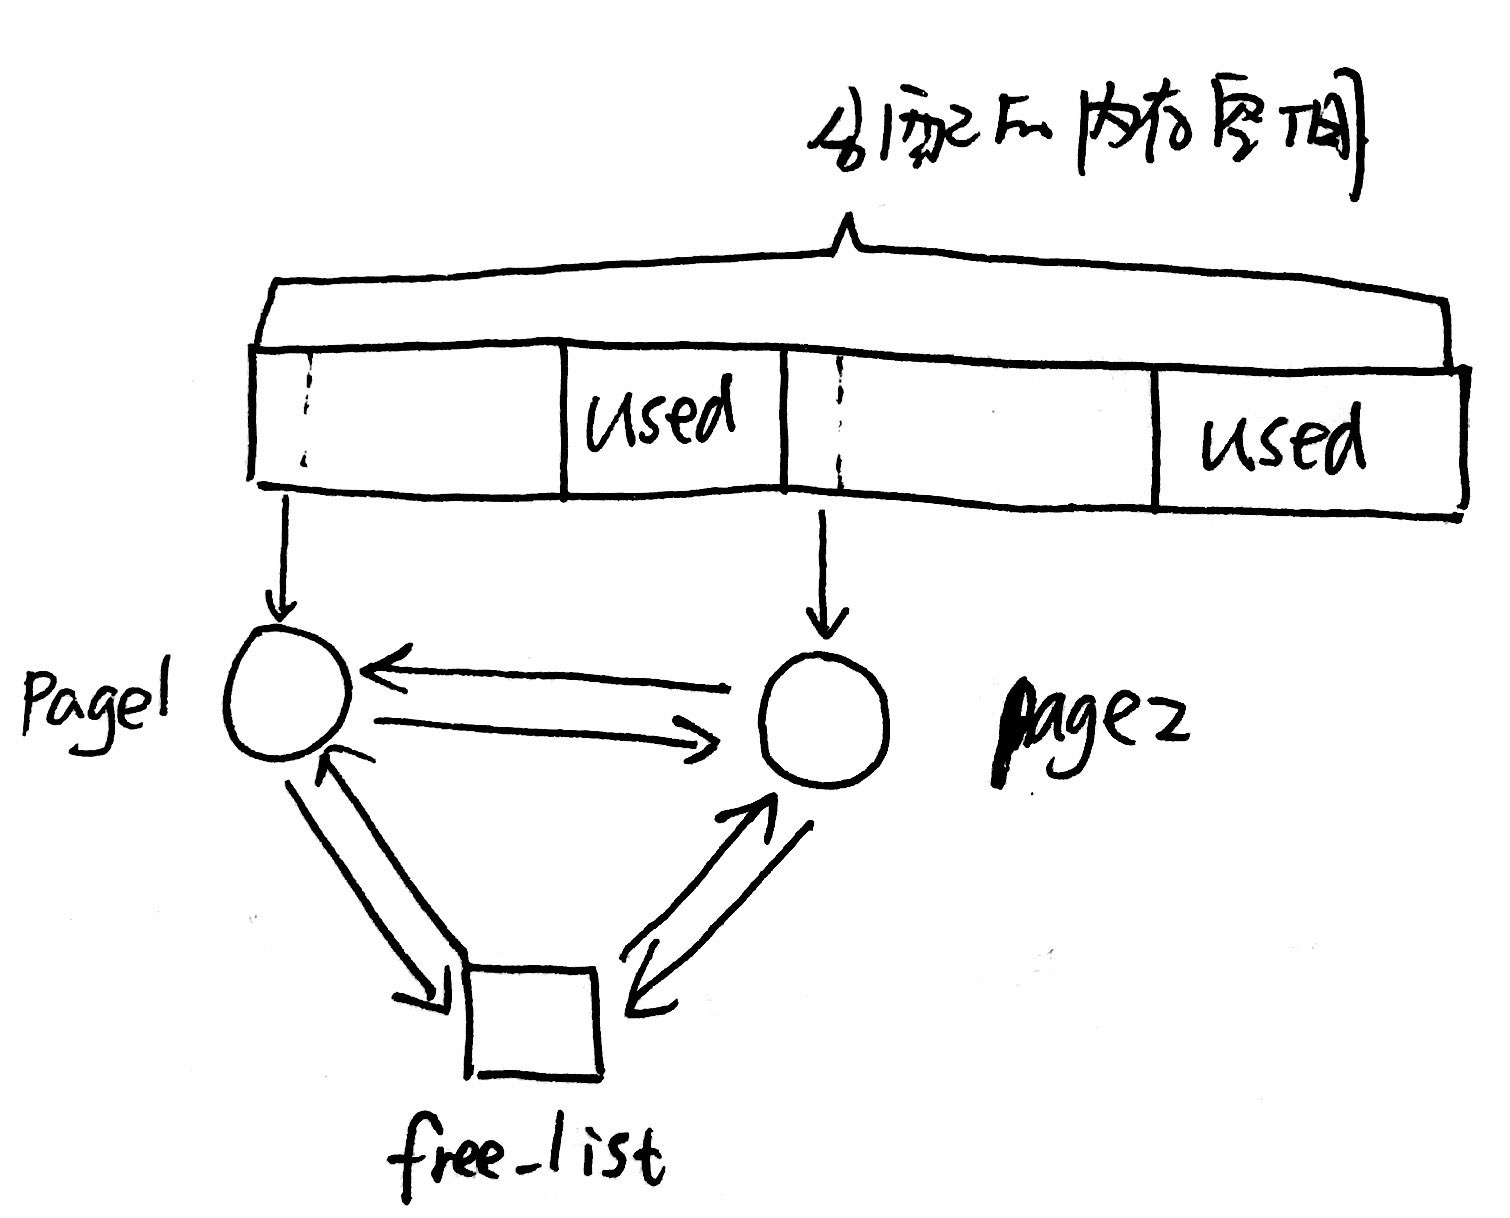 分配的内存空间
used
used
Page1
page2
free_list